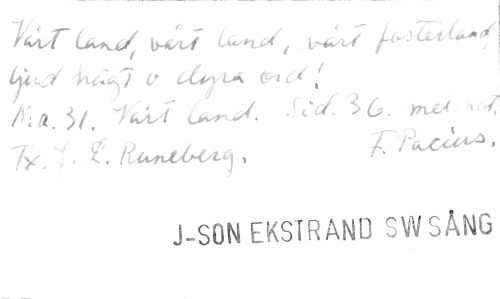 Vårt land, vårt land, vårt fosterland,
ljud högt o dyra ord!
N:a. 31. Vårt land. Sid. 36. mel. not.
Tx. J. L. Runeberg. F. Pacius.
J-SON EKSTRAND SW SÅNG